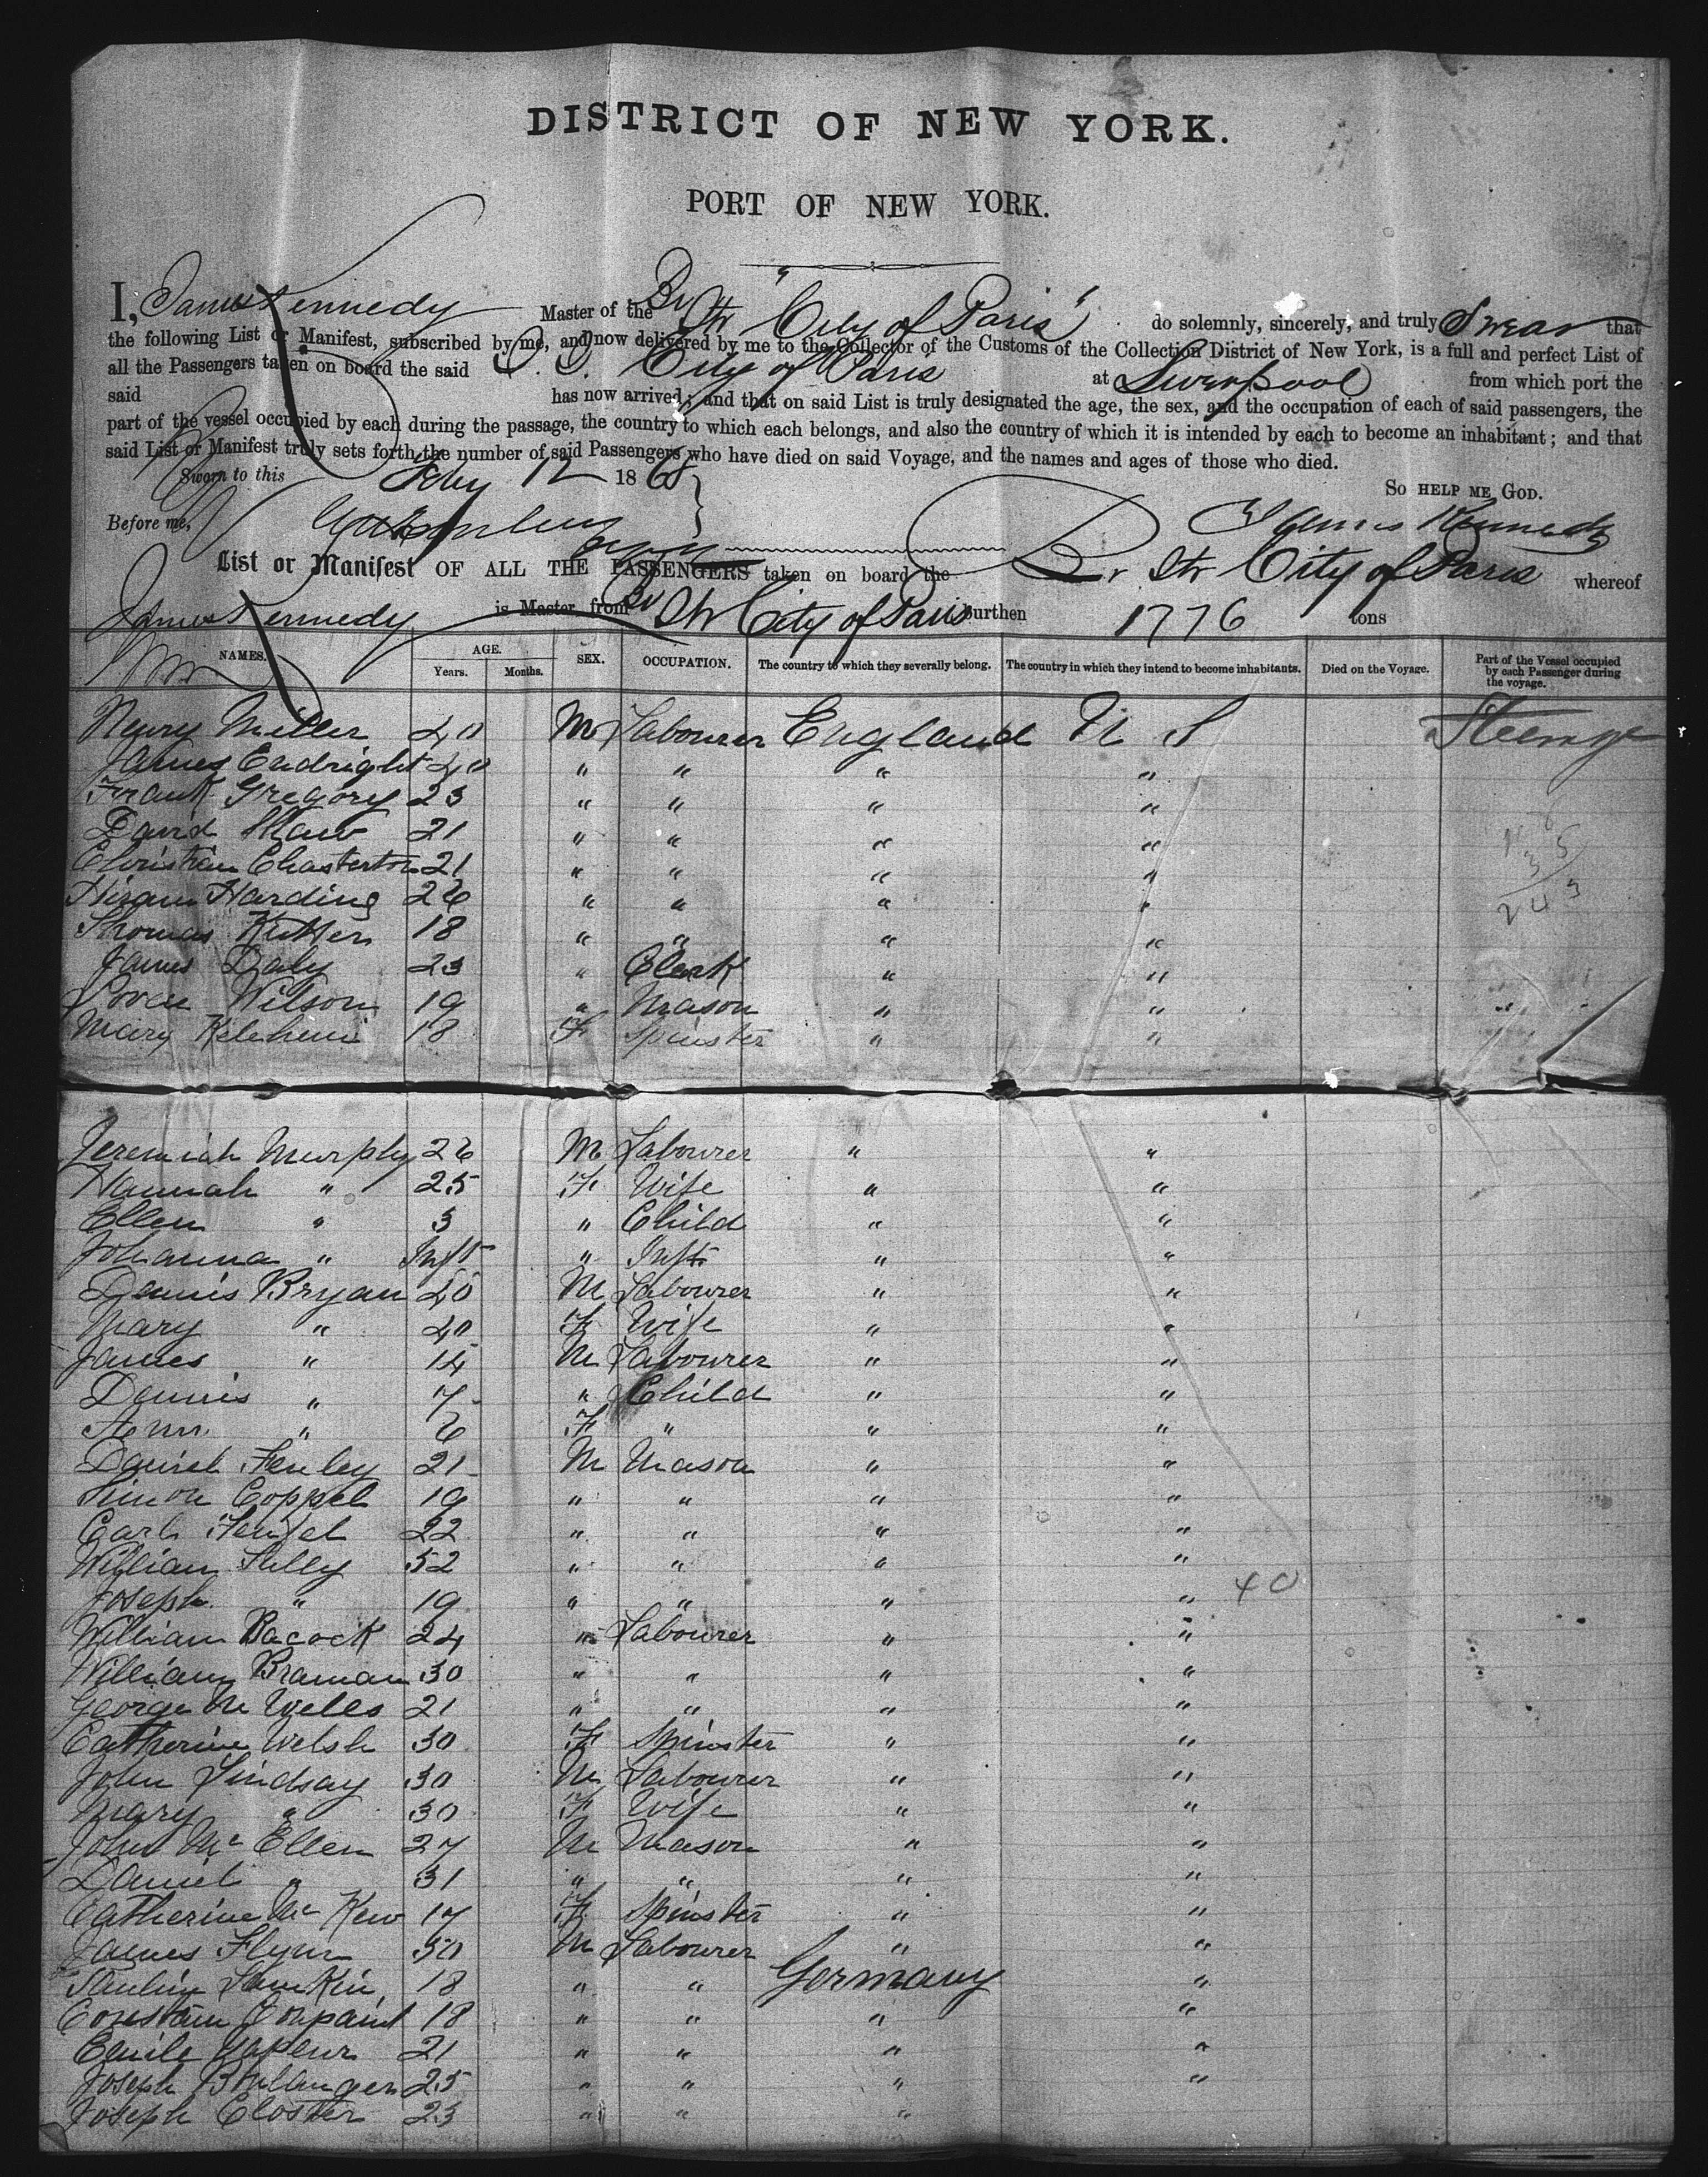 DISTRICT OF NEW YORK.
PORT OF NEW YORK.
I, James Kennedy Master of the Br Str "City of Paris" do solemnly, sincerely, and truly Swear that
the following List or Manifest, subscribed by me, and now delivered by me to the Collector of the Customs of the Collection District of New York, is a full and perfect List of
all the Passengers taken on board the said S. S. City of Paris at Liverpool from which port the
said has now arrived; and that on said List is truly designated the age, the sex, and the occupation of each of said passengers, the
part of the vessel occupied by each during the passage, the country to which each belongs, and also the country of which it is intended by each to become an inhabitant; and that
said List or Manifest truly sets forth the number of said Passengers who have died on said Voyage, and the names and ages of those who died.
Sworn to this Feby 12 1868
So help me God.
Before me, James Kennedy
List or Manifest OF ALL THE PASSENGERS taken on board the Br Str City of Paris whereof
James Kennedy is Master, from Br Str City of Paris burthen 1776 tons
NAMES. AGE. SEX. OCCUPATION. The country to which they severally belong. The country in which they intend to become inhabitants. Died on the Voyage. Part of the Vessel occupied by each Passenger during the voyage.
Years. Months.
Henry Miller 40 M Labourer England U S Steerage
James Endright 40 " " " "
Frank Gregory 23 " " " "
David Shaw 21 " " " "
Christian Chasterton 21 " " " "
Hiram Harding 26 " " " "
Thomas Kutten 18 " " " "
James Daly 23 " Clerk " "
Wilson 19 " Mason " "
Mary 18 F Spinster " "
Jeremiah Murphy 26 M Labourer " "
Hannah " 25 F Wife " "
Ellen " 3 " Child " "
Johanna " Inft " Inft " "
Dennis Bryan 40 M Labourer " "
Mary " 40 F Wife " "
James " 14 M Labourer " "
Dennis " 7 " Child " "
Ann " 6 F " " "
Daniel Fenley 21 M Mason " "
Simon Coppel 19 " " " "
Carl 22 " " " "
William Sully 52 " " " "
Joseph " 19 " " " " 40
William Bacock 24 " Labourer " "
William Braman 30 " " " "
George M Wells 21 " " " "
Catherine Welsh 30 F Spinster " "
John Lindsay 30 M Labourer " "
Mary " 30 F Wife " "
John Mc Ellen 27 M Mason " "
Daniel " 31 " " " "
Catherine Mc Kew 17 F Spinster " "
James Flynn 50 M Labourer " "
18 " " Germany "
18 " " " "
Emile 21 " " " "
Joseph Bullanger 25 " " " "
Joseph Closter 23 " " "